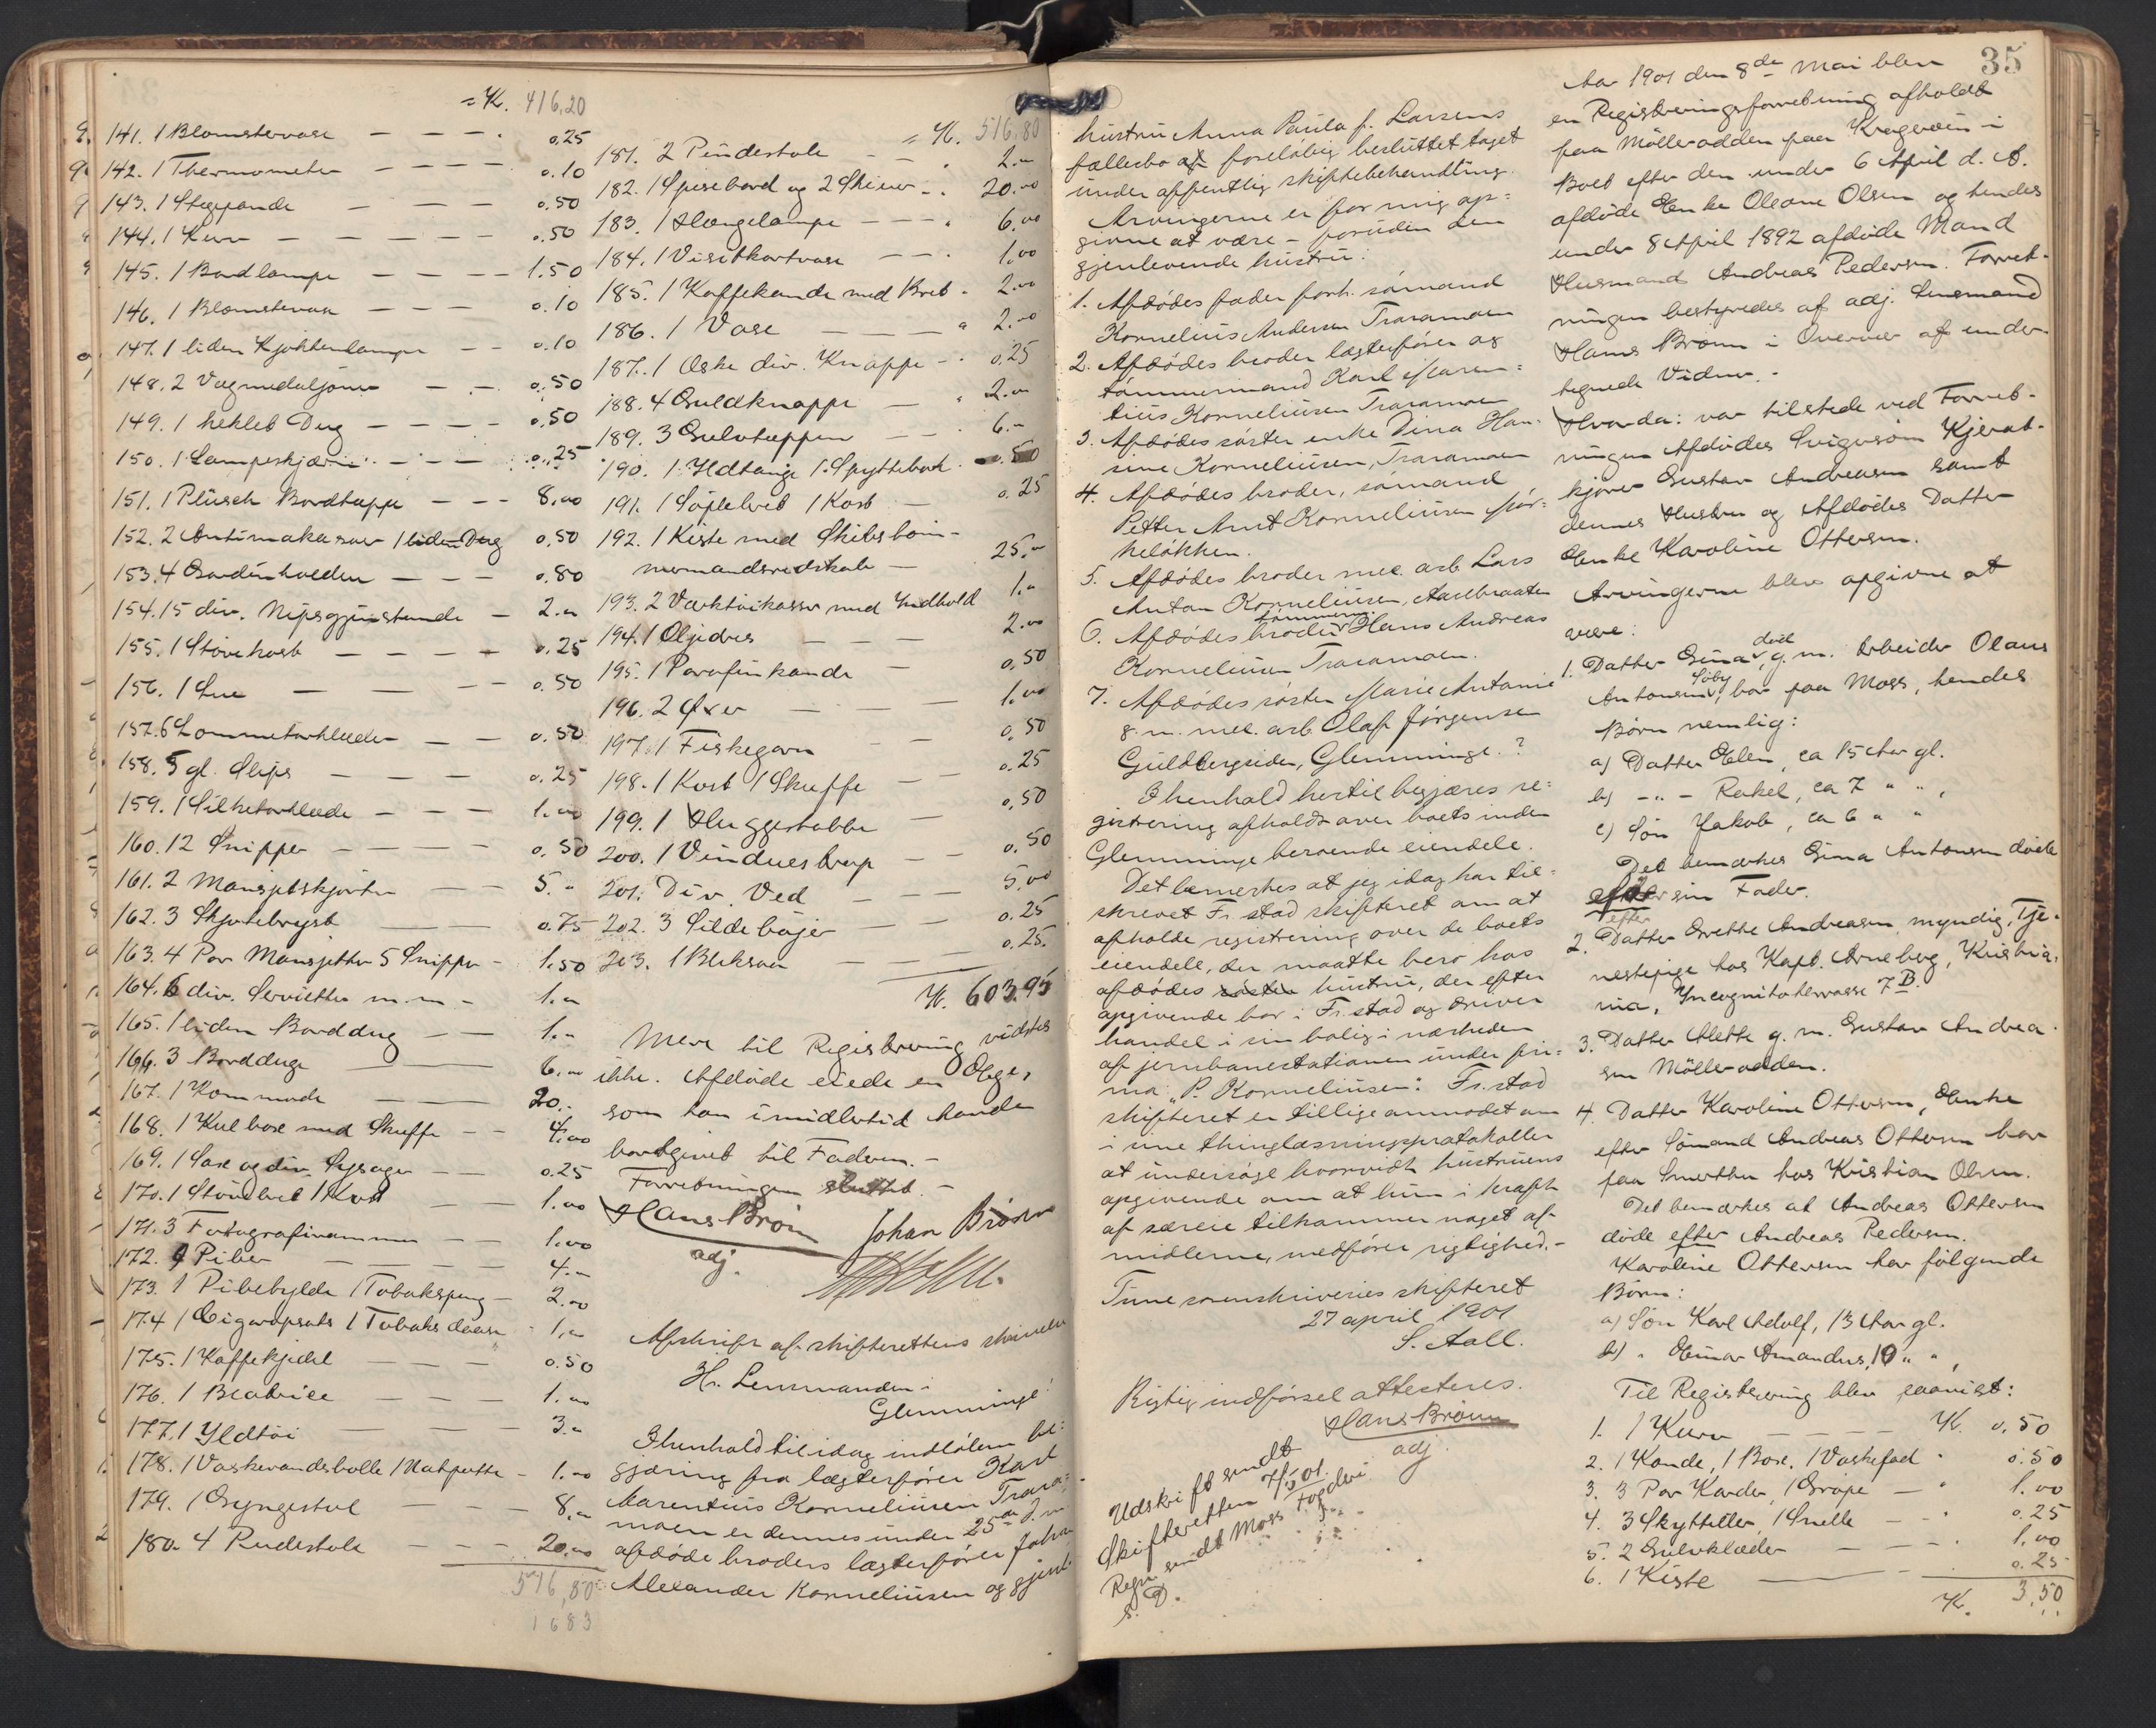 = Kr. 416,20
141. 1 Blomstervase — — — . 0.25
142. 1 Thermometer — — — — 0.10
143. 1 Stegepande — — — — 0.50
144. 1 Kurv — — — — — 0.50
145. 1 Bordlampe — — — — 1.50
146. 1 Blomstervase — — — 0.10
147. 1 liden Kjøkkenlampe — — 0.10
148. 2 Vægmedaljoner — — . 0.50
149. 1 heklet Dug — — — — 0.50
150. 1 Lampeskjærm — — — 0.25
151. 1 Plüsch Bordtæppe — — — 8.00
152. 2 Antimakassar 1 liden Dug 0.50
153. 4 Gardinholdere — — — 0.80
154. 15 div. Nipsgjenstande — 2.-
155. 1 Støvekost — — — — 0.25
156. 1 Lue — — — — 0.50
157. 6 Lommetørklæder — — 0.50
158. 5 gl. Slips — — — — 0.25
159. 1 Silketørklæde — — — 1.00
160. 12 Snipper — — — — 0.50
161. 2 Mansjetskjorter — — 5.-
162. 3 Skjortebryst — — 0.75
163. 4 Par Mansjetter 5 Snipper — 1.50
164. 6 div. Servietter m.m — 1.-
165. 1 liden Borddug — — 1.-
166. 3 Bordduge — — 6.-
167. 1 Kommode — — 20.-
168. 1 Kulboxe med Skuffe — — 4.00
169. 1 Sax og div. Sysager — — 0.25
170. 1 Støvebret 1 Kost — — 1.00
171. 3 Fotografirammer — — 1.00
172. 9 Piber — — — — 4.-
173. 1 Pibehylde 1 Tobakspung — 2.00
174. 1 Cigaropsats 1 Tobaksdaase — 1.-
175. 1 Kaffekjedel — — — 0.50
176. 1 Beatrice — — — 1.00
177. 1 Ildtøi — — — — 3.-
178. 1 Vaskevandsbolle 1 Natpotte — 1.00
179. 1 Gyngestol — — — — 8.-
180. 4 Rudestole — — — 20.00
516,80
1683
= Kr. 516,80
181. 2 Pindestole — — . 2.-
182. 1 Spisebord og 2 Skiver — . 20.00
183. 1 Hængelampe — — — . 6.00
184. 1 Visitkortvase — — . 1.00
185. 1 Kaffekande med Bret . 2.00
186. 1 Vase — — — " 2.-
187. 1 Æske div. Knappe — . 0.25
188. 4 Guldknappe — " 2.00
189. 3 Gulvtæpper — — . 6.-
190. 1 Ildtange 1 Spyttebak . 0.50
191. 1 Søplebret 1 Kost — 0.25
192. 1 Kiste med Skibstøm-
mermandsredskab — 25.-
193. 2 Værktøikasser med Indhold 1.-
194. 1 Oljedres — — — 2.00
195. 1 Parafinkande — 0.50
196. 2 Øxer — — — 1.00
197. 1 Fiskegarn — — 0.50
198. 1 Kost 1 Skuffe — — 0.25
199. 1 Huggestabbe — 0.50
200. 1 Vinduestrap — — 0.50
201. Div. Ved — — 5.00
202. 3 Sildebøjer — — 0.25
203. 1 Bliksaer — — — 0.25.
Kr. 603.95
Mere til Registrering vidstes
ikke. Afdøde eiede en Øeger
som han imidlertid havde
bortgivet til Faderen. —
Forretningen sluttet. —
Hans Brønn Johan Brønn
adj.
Afskrift af skifterettens skrivelse
Hr. Lensmanden i
Glemminge!
I henhold til idag indløben be-
gjæring fra lægterfører Karl
Marentius Korneliusen Trara-
moen er dennes under 25de d.m.
afdøde broders lægterfører Johan
Alexander Korneliusen og gjenl.
hustru Anna Paula f. Larsens
fællesbo af foreløbig besluttet taget
under offentlig skiftebehandling.
Arvingerne er for mig op-
givne at være – foruden den
gjenlevende hustru:
1. Afdødes fader forh. sømand
Kornelius Andersen Traramoen
2. Afdødes broder lægterfører og
tømmermand Karl Maren-
tius Korneliusen Traramoen
3. Afdødes søster enke Dina Han-
sine Korneliusen, Traramoen
4. Afdødes broder, sømand
Petter Arnt Korneliusen Mør-
keløkken.
5. Afdødes broder mek. arb. Lars
Anton Korneliusen, Aasebraaten
tømmerm.
6. Afdødes broder Hans Andreas
Korneliusen Traramoen.
7. Afdødes søster Marie Antonie
g.m. mek. arb. Olaf Jørgensen
Guldbergsiden, Glemminge. ?
I henhold hertil begjæres re-
gistrering afholdt over boets inden
Glemminge beroende eiendele.
Det bemerkes at jeg idag har til-
skrevet Fr.stad skifteret om at
afholde registrering over de boets
eiendele, der maatte bero hos
afdødes søster hustru, der efter
opgivende bor i Fr.stad og driver
handel i sin bolig i nærheden
af jernbanestationen under fir-
ma „P. Korneliusen". Fr.stad
skifteret er tillige anmodet om
i sine thinglæsningsprotokoller
at undersøge hvorvidt hustruens
opgivende om at hun i kraft
af særeie tilkommer noget af
midlerne, medfører rigtighed. —
Tune sorenskriveries skifteret
27 april 1901
S. Aall.
Rigtig indførsel attesteres.
Hans Brønn
adj.
Udskrift sendt
Skifteretten 7/5 01.
Regn. sendt Moss Fogderi
s. D.
35
Aar 1901 den 8de Mai blev
en Registreringsforretning afholdt
paa Mølleradden paa Kragerøen i
Boet efter den under 6 April d. A.
afdøde Enke Oleane Olsen og hendes
under 8 April 1892 afdøde Mand
Husmand Andreas Pedersen. Forret-
ningen bestyredes af adj. Lensmand
Hans Brønn i Overvær af under-
tegnede Vidner. -
Hvorda: var tilstede ved Forret-
ningen Afdødes Svigersøn Kjørat-
kjører Gustav Andreasen samt
dennes Hustru og Afdødes Datter
Enke Karoline Ottersen.
Arvingerne blev opgivne at
være:
død
1. Datter Gina, g.m. Arbeider Olaus
Søby
Antonsen, bor paa Moss, hendes
Børn nemlig:
a) Datter Elen, ca 15 Aar gl.
b) -"- Rakel, ca 7 " ",
c) Søn Jakob, ca 6 " "
Det bemærkes Gina Antonsen døde
efter sin Fader.
efter
2. Datter Grethe Andreasen, myndig, Tje-
nestepige hos Kapt. Arneberg, Kristia-
nia, Incognitoterrasse 7 B.
3. Datter Alette g.m. Gustav Andrea-
sen Mølleradden.
4. Datter Karoline Ottersen, Enke
efter Sømand Andreas Ottersen bor
paa Smerthu hos Kristian Olsen.
Det bemærkes at Andreas Ottersen
døde efter Andreas Pedersen.
Karoline Ottersen har følgende
Børn:
a) Søn Karl Adolf, 13 Aar gl.
b) " Einar Amandus, 10 " ",
Til Registrering blev paavist:
1. 1 Kurv — — — — Kr. 0,50
2. 1 Kande, 1 Boxe, 1 Vaskefad " 0.50
3. 3 Par Karder, 1 Gripe — " 1.00
4. 3 Skytteller, 1 Snelle — — " 0.25
5. 2 Gulvklæder — — — . 1.00
6. 1 Kiste — — 0.25
Kr. 3.50